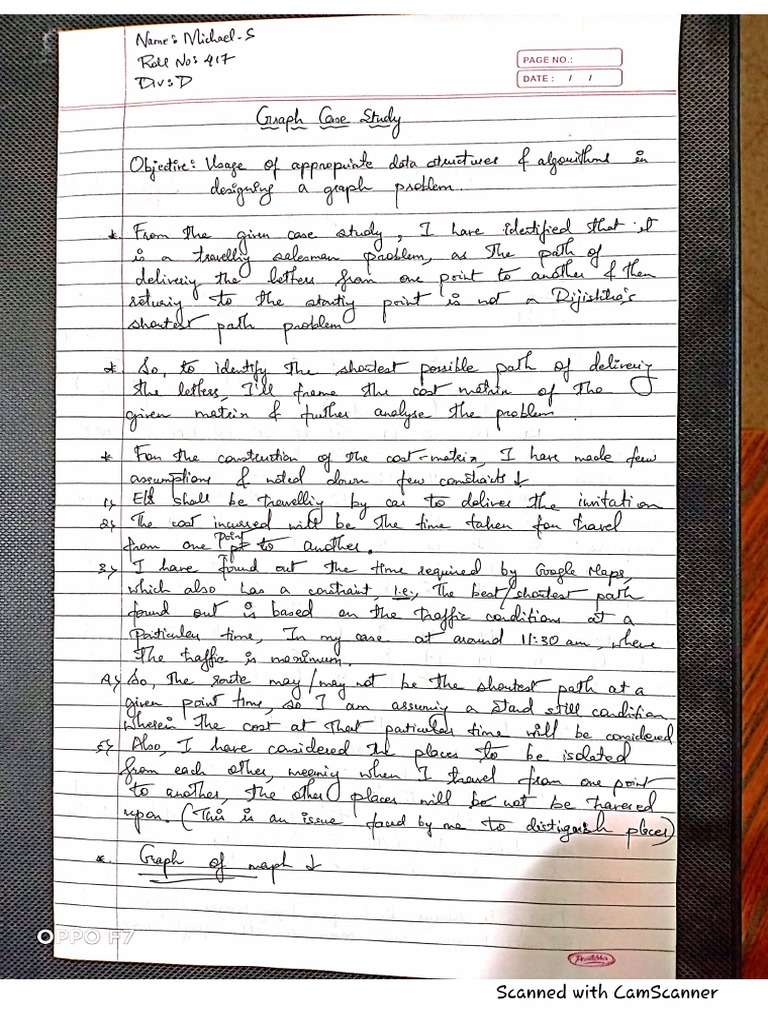 Name: Michael-S
Roll No: 417
Div: D
PAGE NO.:
DATE: / /
Graph Case Study
Objective: Usage of appropriate data structures & algorithms in
designing a graph problem.
* From the given case study, I have identified that it
is a travelling salesman problem, as the path of
delivering the letters from one point to another & then
returning to the starting point is not a Dijishtra's
shortest path problem
* So, to identify the shortest possible path of delivering
the letters, I'll frame the cost matrix of the
given matrix & further analyse the problem.
* For the construction of the cost-matrix, I have made few
assumptions & noted down few constraints ↓
1) shall be travelling by car to deliver the invitation
2) The cost incurred will be the time taken for travel
from one point to another.
3) I have found out the time required by Google Maps,
which also has a constraint, i.e., The best/shortest path
found out is based on the traffic conditions at a
particular time, In my case at around 11:30 am, where
the traffic is maximum.
4) So, the route may/may not be the shortest path at a
given point time, so I am assuming a stand still condition
wherein the cost at that particular time will be considered
5) Also, I have considered places to be isolated
from each other, meaning when I travel from one point
to another, the other places will be not be traversed
upon. (This is an issue faced by me to distinguish places)
* Graph of maph ↓
OPPO F7
Scanned with CamScanner